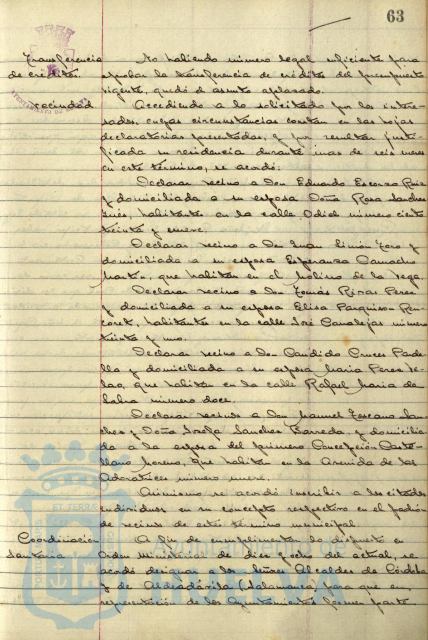 63
Transferencia No habiendo número legal suficiente para
de créditos aprobar la transferencia de créditos del presupuesto
vigente, quedó el asunto aplazado.
Vecindad Accediendo a lo solicitado por los intere-
sados, cuyas circunstancias constan en las hojas
declaratorias presentadas, y por resultar justi-
ficada su residencia durante mas de seis meses
en este término, se acordó:
Declarar vecino a Don Eduardo Ruiz
y domiciliada a su esposa Doña Rosa Sanchez
habitantes en la calle Odiel número ciento
treinta y nueve.
Declarar vecino a Don Juan Limón Toro y
domiciliada a su esposa Esperanza Camacho
Martín, que habitan en el Molino de la Vega.
Declarar vecino a Don Tomás Rivas Perez
y domiciliada a su esposa Elisa
habitantes en la calle José Canalejas número
treinta y uno.
Declarar vecino a Don Candido Cruces Padi-
lla y domiciliada a su esposa Maria Perez
que habitan en la calle Rafael Maria de
Labra número doce.
Declarar vecinos a Don Manuel Toscano San-
chez y Doña Sanchez Barreda, y domicilia-
da a la esposa del primero Concepción Caste-
llano Moreno, que habitan en la Avenida de las
Adoratrices número nueve.
Asimismo se acordó inscribir a los citados
individuos en su concepto respectivo en el padrón
de vecinos de este término municipal.
Coordinación A fin de cumplimentar lo dispuesto en
Sanitaria Orden Ministerial de diez y ocho del actual, se
acordó designar a los Señores Alcaldes de Córdoba
y de Aldeadávila (Salamanca) para que en
representación de los Ayuntamientos formen parte